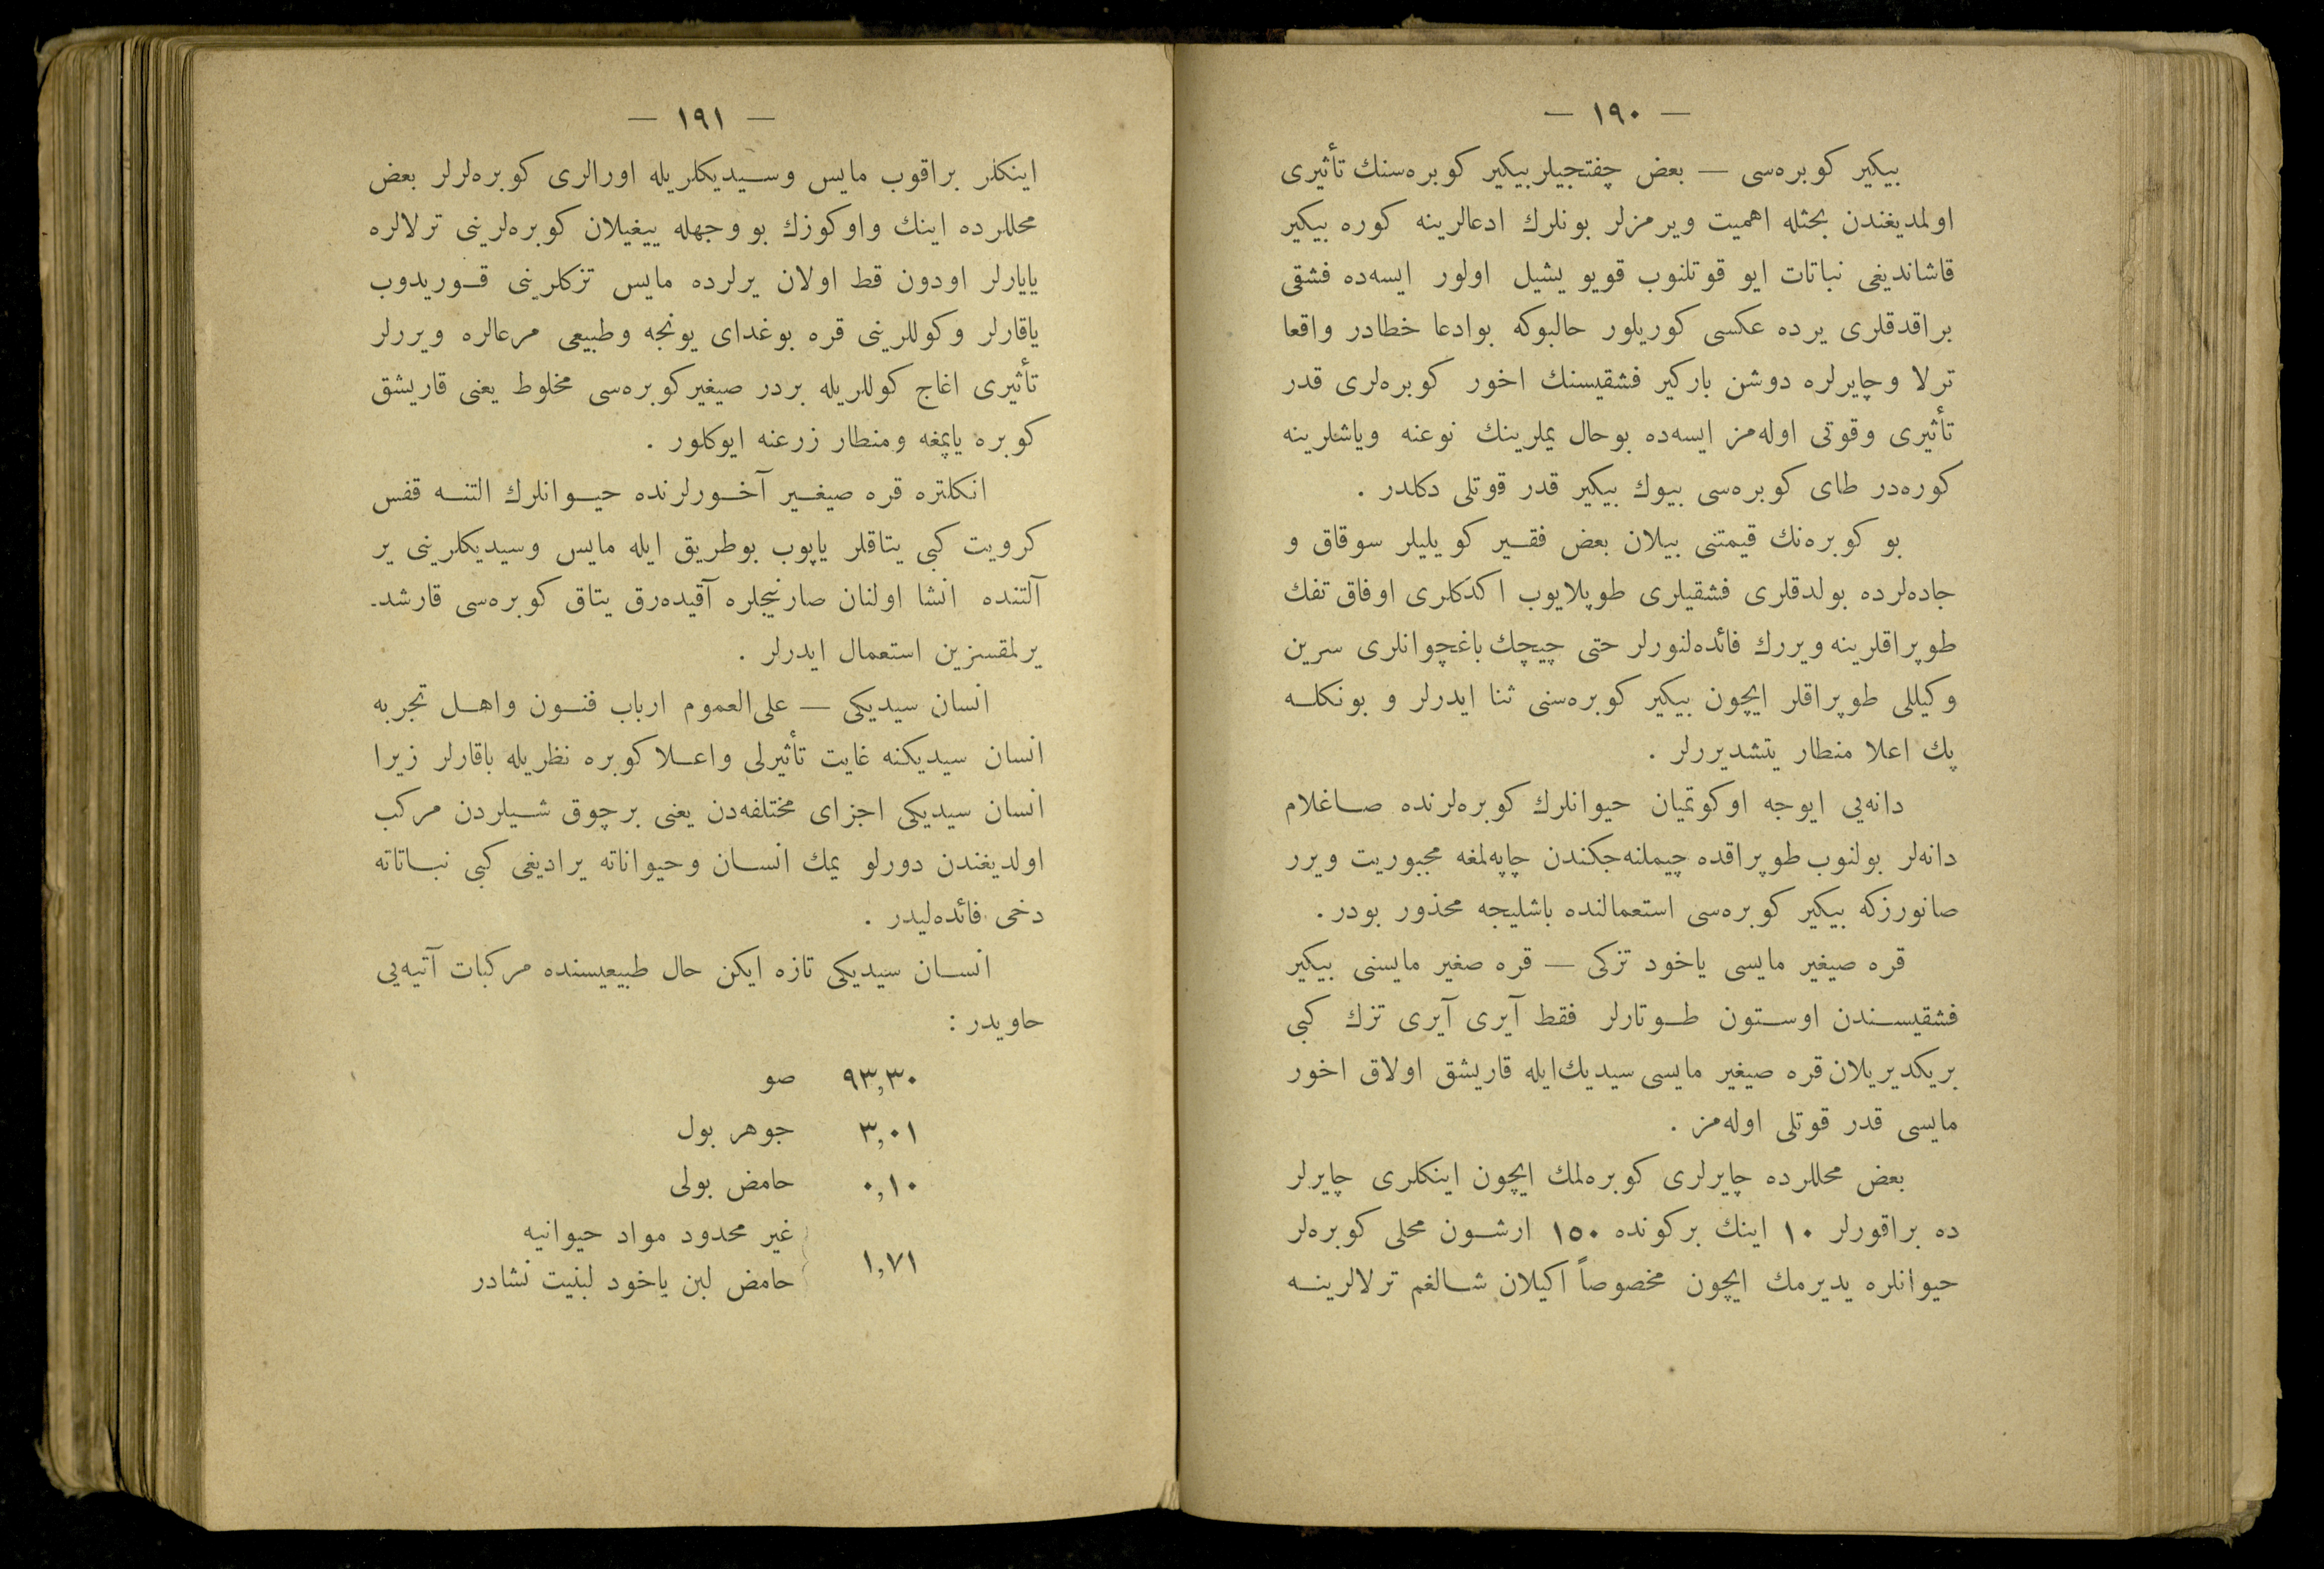 — ١٩٠ —
بيكير كوبره‌سی — بعض چفتجيلر بيكير كوبره‌سنك تأثيری
اولمديغندن بحثله اهميت ويرمزلر بونلرك ادعالرينه كوره بيكير
قاشانديغی نباتات ايو قوتلنوب قويو يشيل اولور ايسه‌ده فشقی
براقدقلری يرده عكسی كوريلور حالبوكه بوادعا خطادر واقعا
ترلا وچايرلره دوشن باركير فشقيسنك اخور كوبره‌لری قدر
تأثيری وقوتی اوله‌مز ايسه‌ده بوحال يملرينك نوعنه وياشلرينه
كوره‌در طای كوبره‌سی بيوك بيكير قدر قوتلی دكلدر .
بو كوبره‌نك قيمتنی بيلان بعض فقــير كويليلر سوقاق و
جاده‌لرده بولدقلری فشقيلری طوپلايوب اكدكلری اوفاق تفك
طوپراقلرينه ويررك فائده‌لنورلر حتی چيچك باغچوانلری سرين
وكيللی طوپراقلر ايچون بيكير كوبره‌سنی ثنا ايدرلر و بونكلــه
پك اعلا منطار يتشديررلر .
دانه‌يی ايوجه اوكوتميان حيوانلرك كوبره‌لرنده صــاغلام
دانه‌لر بولنوب طوپراقده چيملنه‌جكندن چاپه‌لمغه مجبوريت ويرر
صانورزكه بيكير كوبره‌سی استعمالنده باشليجه محذور بودر .
قره صيغير مايسی ياخود تزكی — قره صغير مايسنی بيكير
فشقيســندن اوســتون طــوتارلر فقط آيری آيری تزك كبی
بريكديريلان قره صيغير مايسی سيديك‌ايله قاريشق اولاق اخور
مايسی قدر قوتلی اوله‌مز .
بعض محللرده چايرلری كوبره‌لمك ايچون اينكلری چايرلر
ده براقورلر ١٠ اينك بركونده ١٥٠ ارشــون محلی كوبره‌لر
حيوانلره يديرمك ايچون مخصوصاً اكيلان شــالغم ترلالرينــه
— ١٩١ —
اينكلر براقوب مايس وســيديكلريله اورالری كوبره‌لرلر بعض
محللرده اينك واوكوزك بو وجهله ييغيلان كوبره‌لرينی ترلالره
يايارلر اودون قط اولان يرلرده مايس تزكلرينی قــوريدوب
ياقارلر وكوللرينی قره بوغدای يونجه وطبيعی مرعالره ويررلر
تأثيری اغاج كوللريله بردر صيغير كوبره‌سی مخلوط يعنی قاريشق
كوبره ياپمغه ومنطار زرعنه ايوكلور .
انكلتره قره صيغــير آخــورلرنده حيــوانلرك التنــه قفس
كرويت كبی يتاقلر ياپوب بوطريق ايله مايس وسيديكلرينی ير
آلتنده انشا اولنان صارنيجلره آقيده‌رق يتاق كوبره‌سی قارشد-
يرلمقسزين استعمال ايدرلر .
انسان سيديكی — علی‌العموم ارباب فنــون واهــل تجربه
انسان سيديكنه غايت تأثيرلی واعــلا كوبره نظريله باقارلر زيرا
انسان سيديكی اجزای مختلفه‌دن يعنی برچوق شــيلردن مركب
اولديغندن دورلو يمك انســان وحيواناته يراديغی كبی نبــاتاته
دخی فائده‌ليدر .
انســان سيديكی تازه ايكن حال طبيعيسنده مركبات آتيه‌يی
حاويدر :
٩٣,٣٠ صو
٣,٠١ جوهر بول
٠,١٠ حامض بولی
١,٧١ غير محدود مواد حيوانيه
حامض لبن ياخود لبنيت نشادر